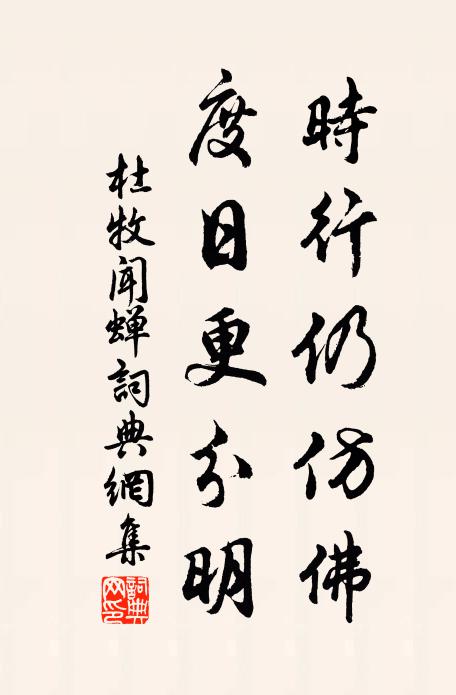 時行仍仿佛
度日更分明
杜牧聞蟬詞典網集
詞典
网印